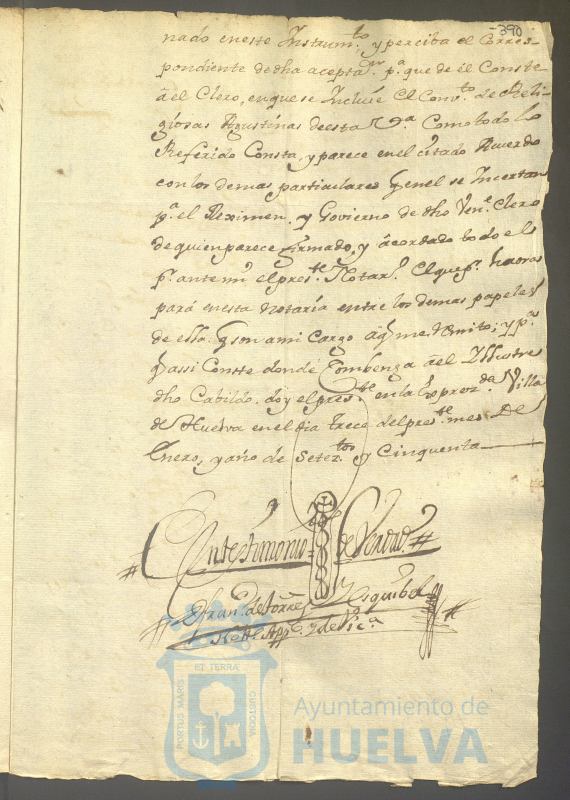 390
nado en este Instrum.to y perciba el Corres-
pondiente de dha acepta.on p.a que de él Conste
â el Clero, en que se Incluie El Conv.to de Reli-
giosas Agustinas de esta V.a Como todo lo
Referido Consta, y parece en el citado Acuerdo
con los demas particulares q en el se Incertan
p.a el Reximen. y Govierno de dho Ven.e Clero
de quien parece firmado, y acordado todo ello
p.r ante mi el pres.te Notar.o El que p.r haora
pará en esta Notaría entre los demas papeles
de ella. q son a mi Cargo aq me Remito; y p.a
q assi Conste donde Combenga â el Illustre
dho Cabildo. doy el pres.te en la expres.da Villa
de Huelva en el dia trece del pres.te mes De
Enero, y año de Setez.tos y Cinquenta
En testimonio de Verdad
Fran.co de Torres Esquibel
Nott.o App.co y de Vic.a
PORTUS MARIS ET TERRAE CUSTODIA
Ayuntamiento de
HUELVA